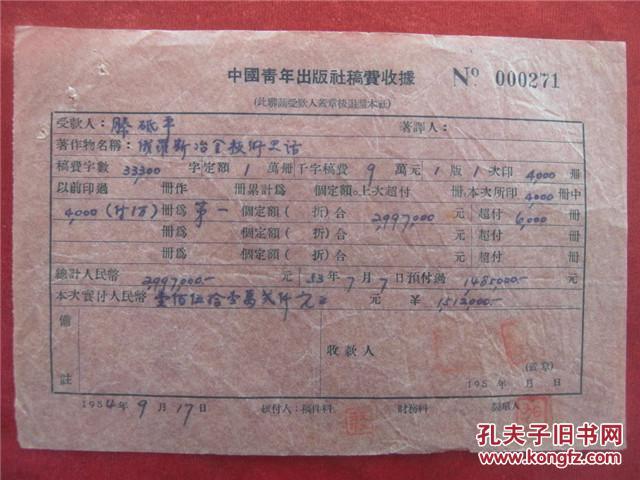 中國青年出版社稿費收據 № 000271
(此聯請受款人蓋章後退還本社)
受款人：滕砥平 著譯人：
著作物名稱：俄羅斯冶金技術史話
稿費字數 33300 字定額 1 萬冊 千字稿費 9 萬元 1 版 1 次印 4000 冊
以前印過 冊作 冊累計爲 個定額。上次超付 冊本次所印 4000 冊中
4,000 (付清) 冊爲 第一 個定額( 折)合 2,997,000 元 超付 6,000 冊
冊爲 個定額( 折)合 元 超付 冊
冊爲 個定額( 折)合 元 超付 冊
總計人民幣 2997000- 元 53年 7月 7日預付過 1485000.-
本次實付人民幣 壹佰伍拾壹萬貳仟元正 元 ¥ 1,512,000.-
備註
收款人
(蓋章)
195 年 月 日
1954年 9月 17日 核付人：稿件科 財務科 製單人
孔夫子旧书网
www.kongfz.com